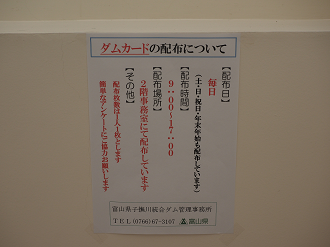 ダムカードの配布について
【配布日】
毎日
(土・日・祝日・年末年始も配布しています)
【配布時間】
9:00~17:00
【配布場所】
2階事務室にて配布しています
【その他】
配布枚数は1人1枚とします
簡単なアンケートにご協力お願いします
富山県子撫川総合ダム管理事務所
TEL(0766)67-3107 富山県